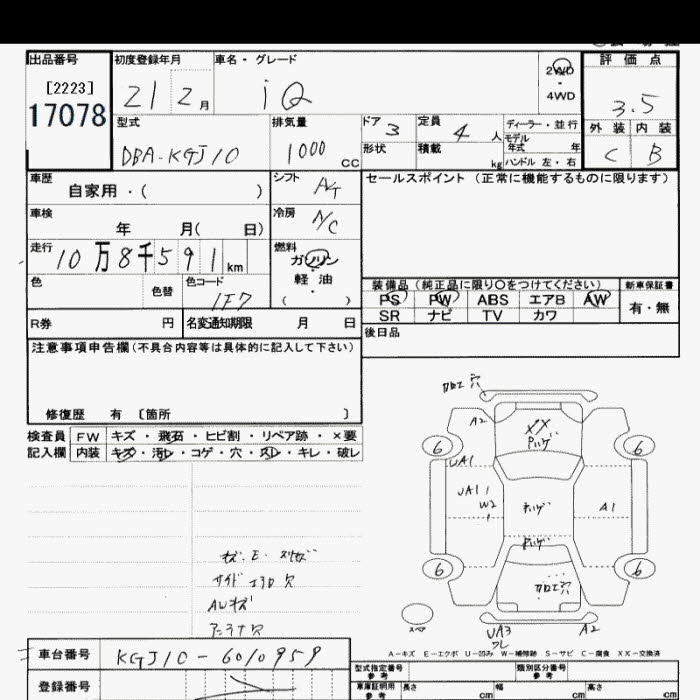 出品番号 初度登録年月 車名・グレード 評価点
[2223] 21 2月 iQ 2WD・4WD 3.5
17078
型式 排気量 ドア 3 定員 4人 ディーラー・並行 外装 内装
DBA-KGJ10 1000cc 形状 積載 kg モデル年式 年 ハンドル 左・右 C B
車歴 自家用・( ) シフト A/T セールスポイント(正常に機能するものに限ります)
車検 年 月( 日) 冷房 A/C
走行 10万8千591km 燃料 ガソリン
軽油
( )
色 色替 色コード 1F7 装備品(純正品に限り○をつけてください) 新車保証書
PS PW ABS エアB AW 有・無
R券 円 名変通知期限 月 日 SR ナビ TV カワ
後日品
注意事項申告欄(不具合内容等は具体的に記入して下さい)
修復歴 有 [箇所 ]
検査員 FW キズ・飛石・ヒビ割・リペア跡・×要
記入欄 内装 キズ・汚レ・コゲ・穴・スレ・キレ・破レ
加工穴
A2 XX
6 6
UA1
UA1
W2 A1
6 6
加工穴
UA3 A2
AWキズ
アンテナ穴
A-キズ E-エクボ U-凹み W-補修跡 S-サビ C-腐食 XX-交換済
車台番号 KGJ10-6010959
登録番号
型式指定番号 参考 類別区分番号 参考
車庫証明用 参考 長さ cm 幅 cm 高さ cm